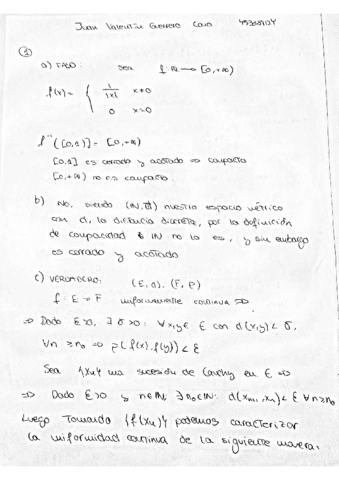 Juan Valentín Guerrero Cano
①
a) FALSO: Sea f: ℝ → [0,+∞)
f(x) = { 1/|x| x≠0
0 x=0
f⁻¹([0,1]) = [0,+∞)
[0,1] es cerrado y acotado ⇒ compacto
[0,+∞) no es compacto.
b) No, siendo (ℕ,d) nuestro espacio métrico
con d, la distancia discreta, por la definición
de compacidad ℕ no lo es, y sin embargo
es cerrado y acotado
c) VERDADERO: (E,d), (F,ρ)
f: E → F uniformemente continua ⇒
⇒ Dado ε>0, ∃ δ>0: ∀x,y ∈ E con d(x,y) < δ,
∀n ≥ n₀ ⇒ ρ(f(x), f(y)) < ε
Sea {xₙ} una sucesión de Cauchy en E ⇒
⇒ Dado ε>0 y n∈ℕ ∃ n₀∈ℕ: d(xₘ, xₙ) < ε ∀n≥n₀
Luego Tomando {f(xₙ)} podemos caracterizar
la uniformidad continua de la siguiente manera: